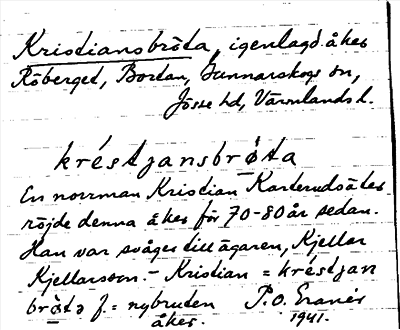 Kristiansbröta, igenlagd åker
Röberget, Bortan, Gunnarskogs sn,
Jösse hd, Värmlands l.
kréstjansbrøta
En norrman Kristian Karterudsäter
röjde denna åker för 70-80 år sedan.
Han var svåger till ägaren, Kjellar
Kjellarsson. - Kristian = kréstjan
brøta f. = nybruden
åker.
P.O.
1941.